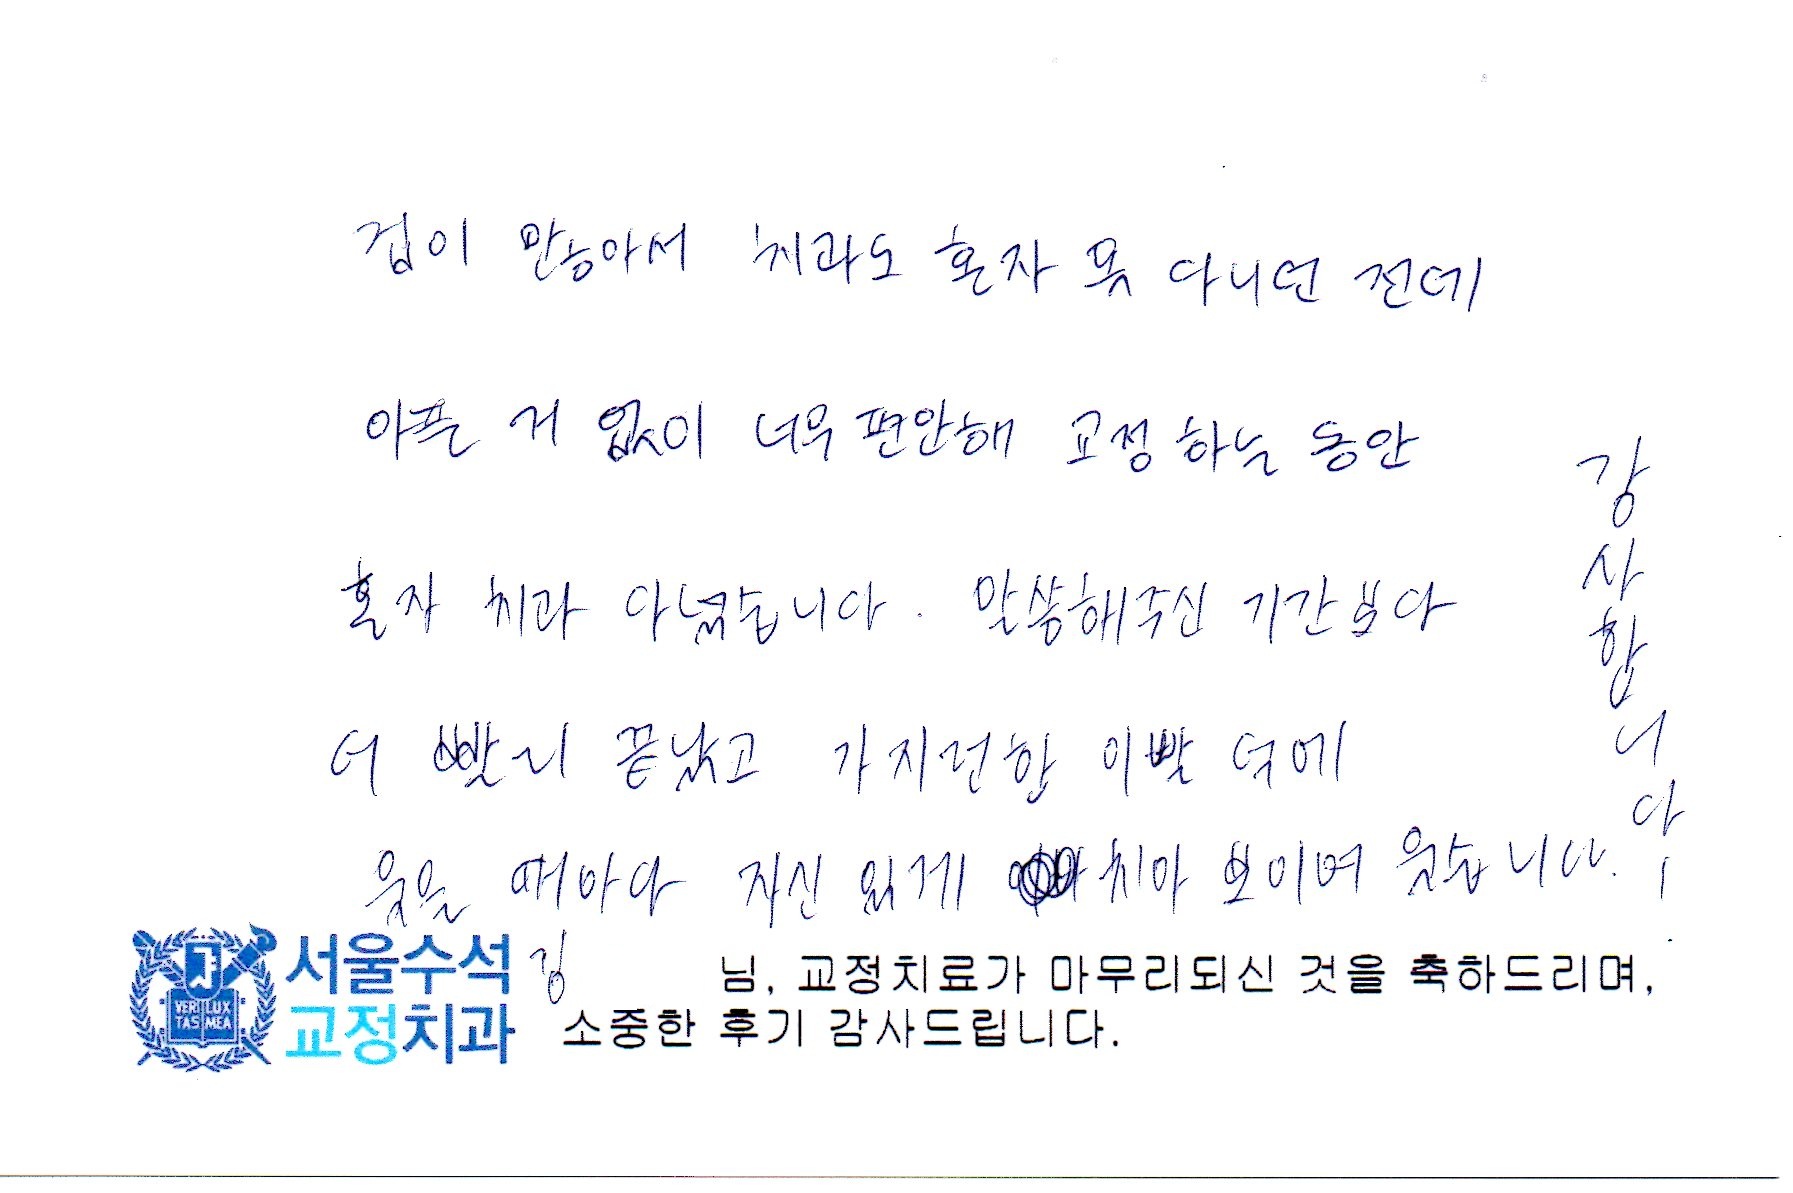 겁이 많아서 치과도 혼자 못 다니던 전데
아픈 거 없이 너무 편안해 교정 하는 동안
혼자 치과 다녔습니다. 말씀해주신 기간보다
더 빨리 끝났고 가지런한 이빨 덕에
웃을 때마다 자신 있게 치아 보이며 웃습니다.
감사합니다!
서울수석
교정치과
VERI LUX
TAS MEA
김 님, 교정치료가 마무리되신 것을 축하드리며,
소중한 후기 감사드립니다.